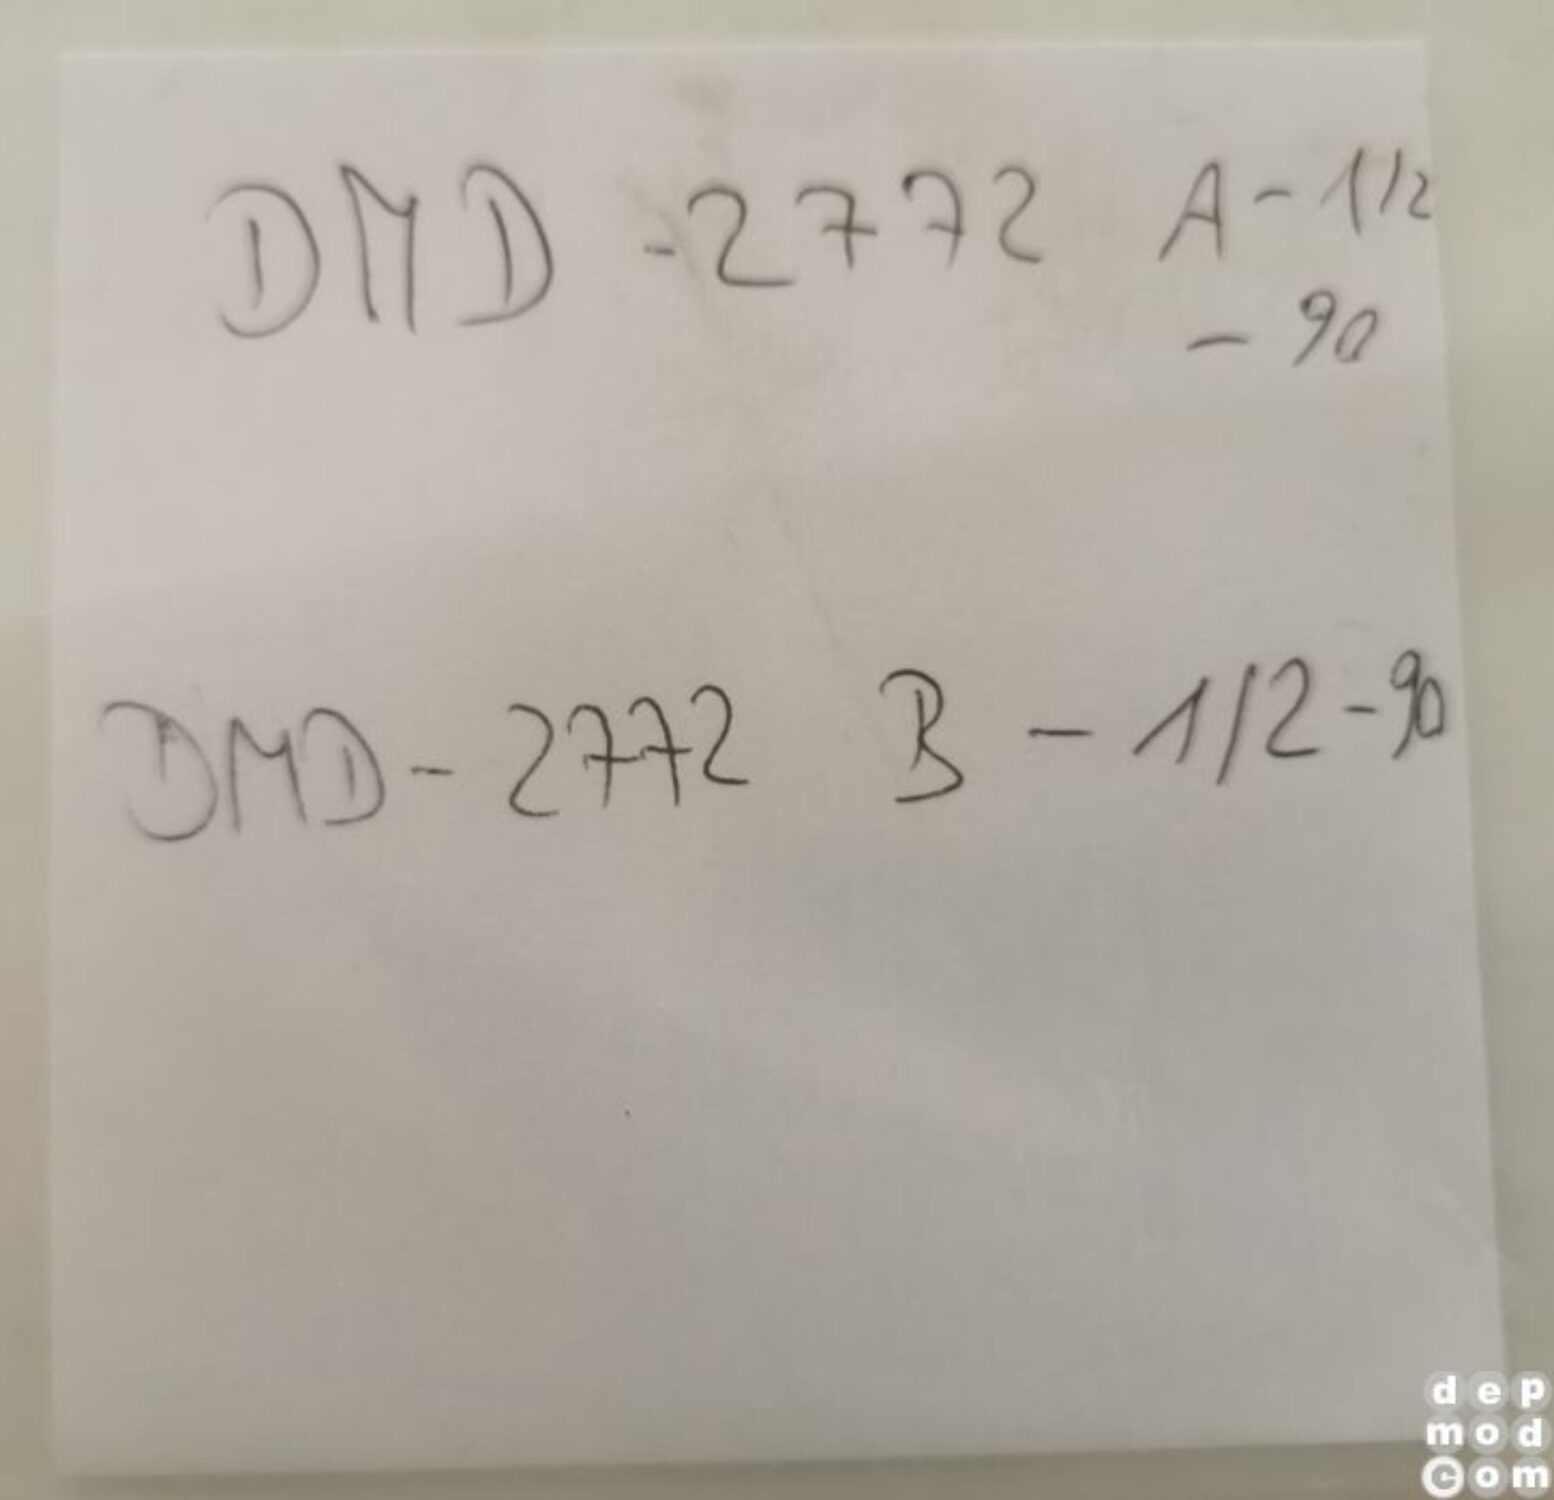 DMD -2772 A - 1/2
- 90
DMD - 2772 B - 1/2 - 90
dep
mod
com